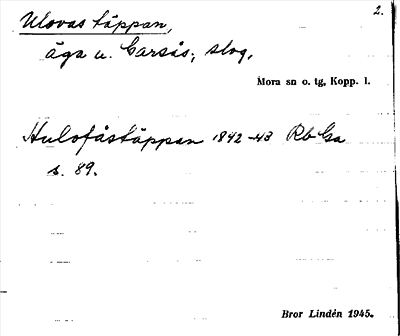 2.
Ulovas täppan,
äga u. Garsås; slog.
Mora sn o. tg, Kopp. l.
Hulofåstäppan 1842-43 Rb Ga
s. 89.
Bror Lindén 1945.